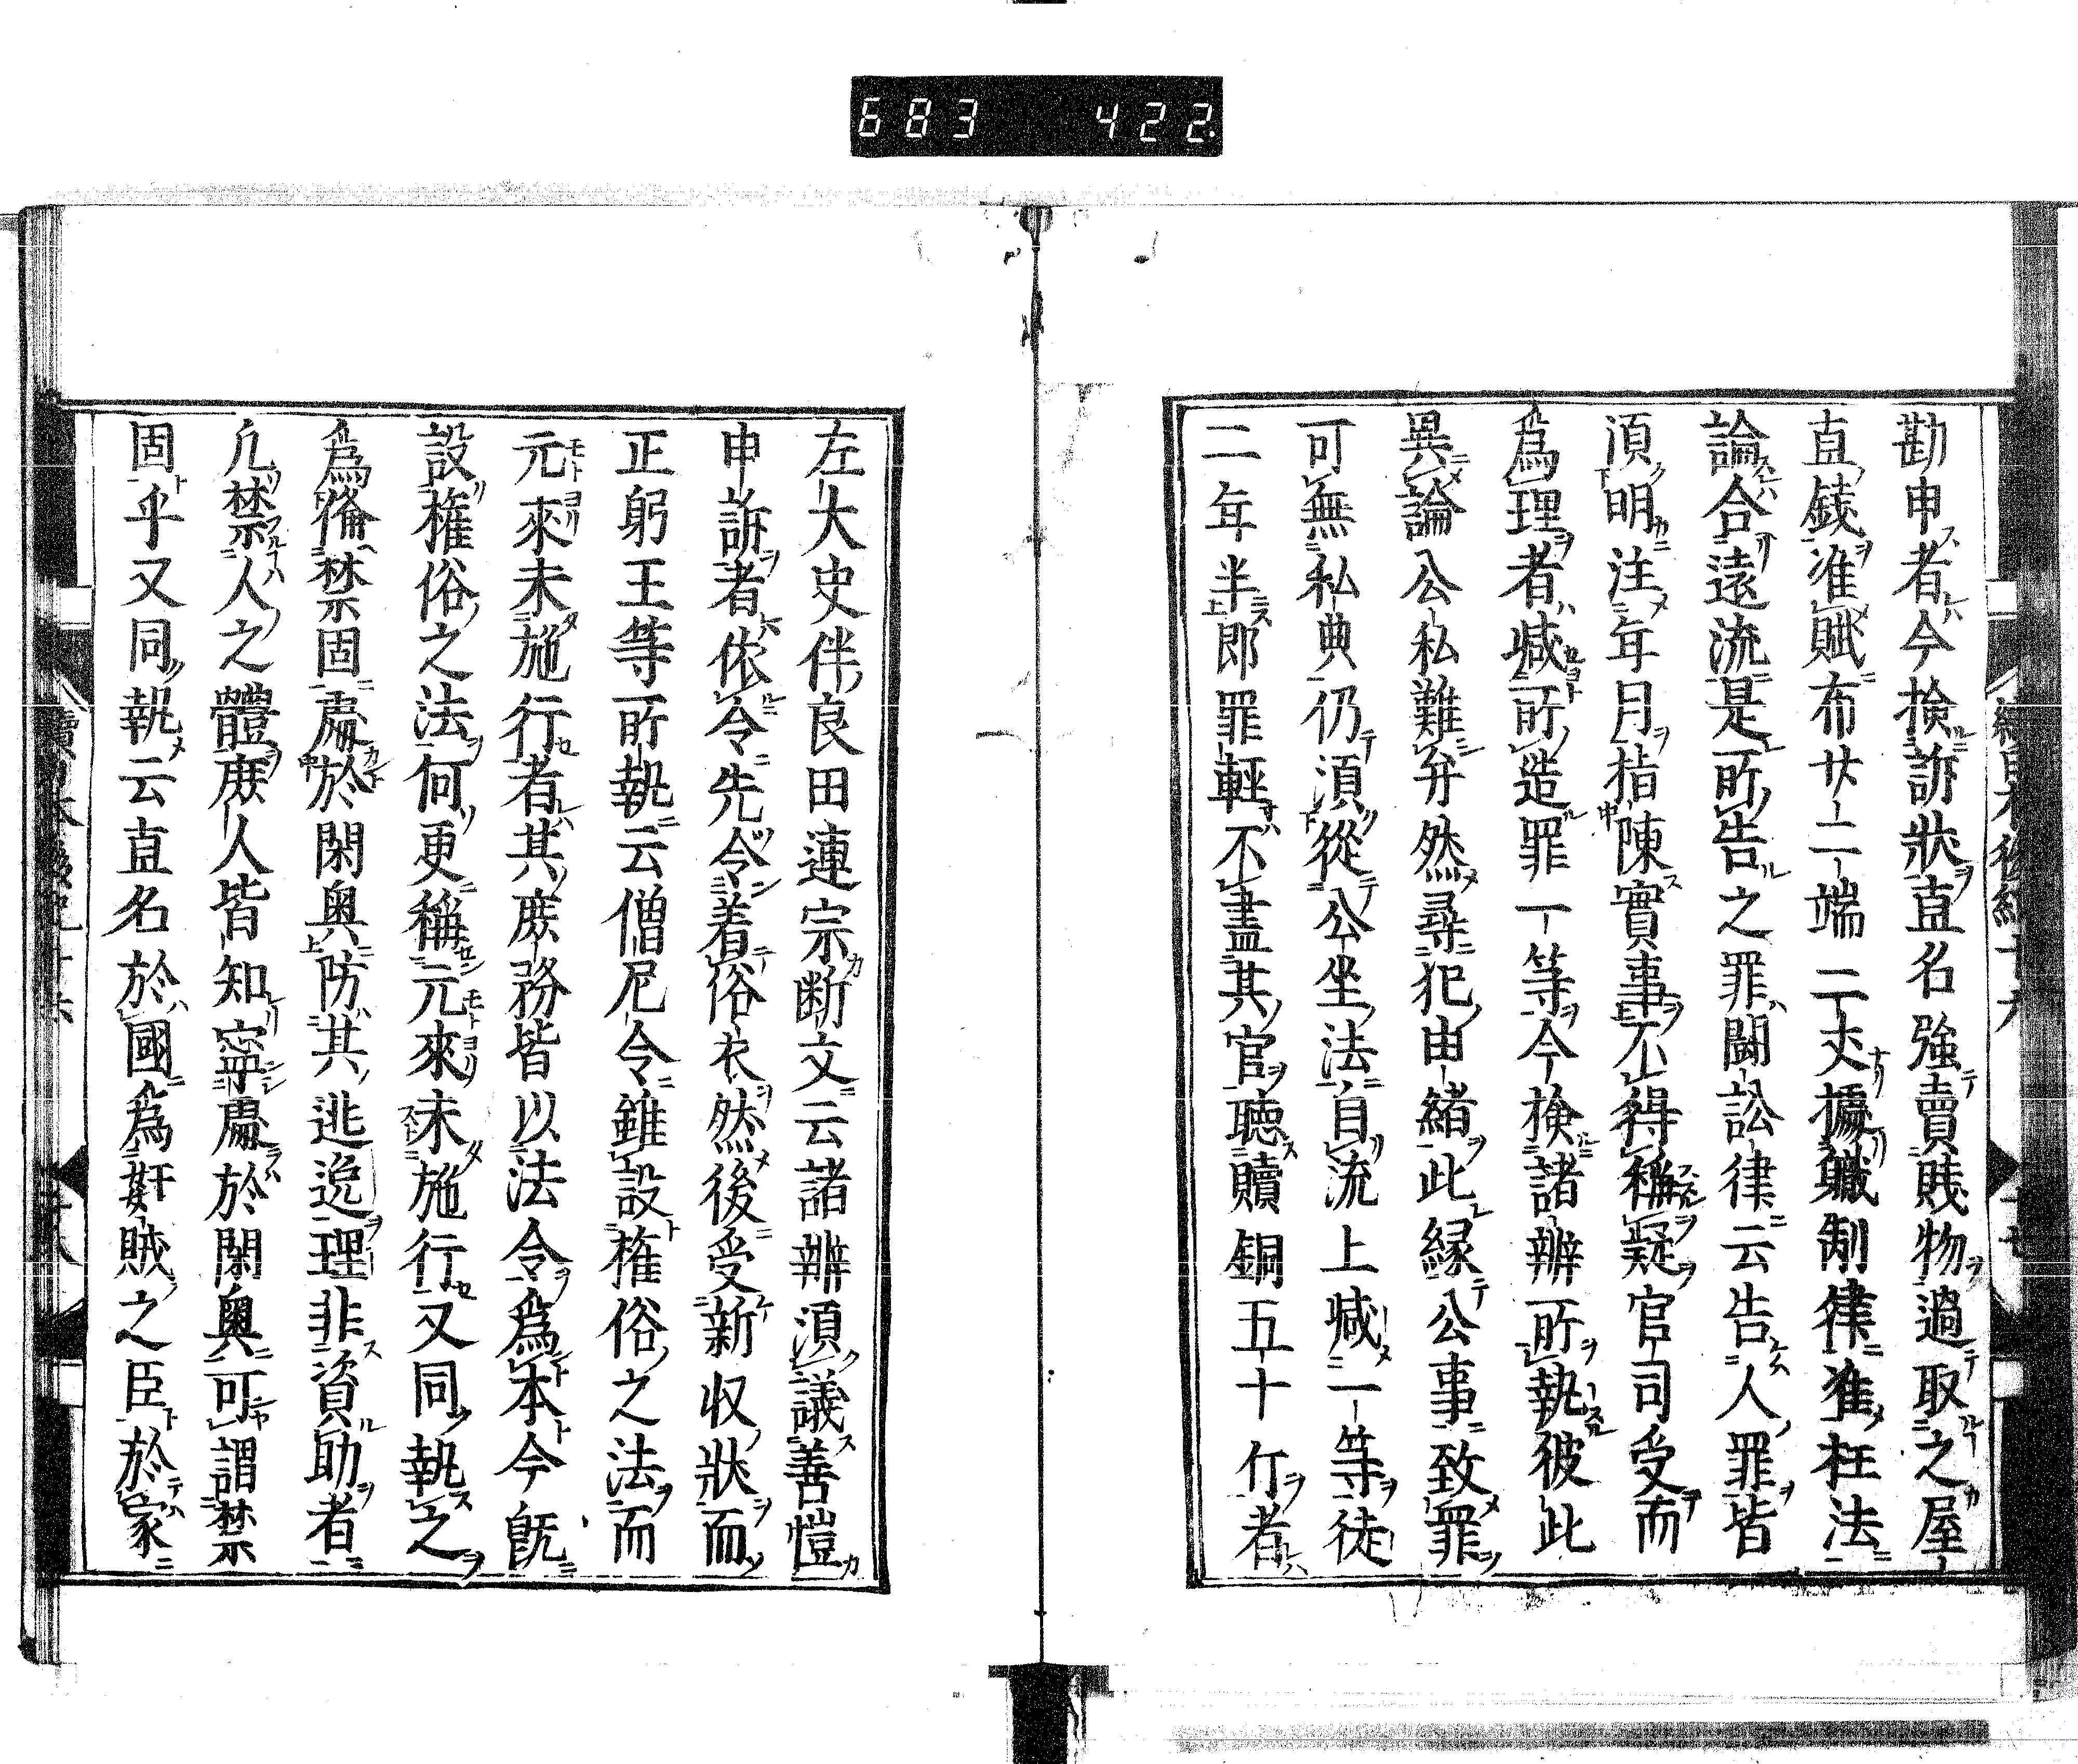 683 422
勘申者今撿訴狀直名強賣賤物過取之屋
直錢准贓布廿二端二丈據職制律准枉法
論合遠流是所告之罪鬪訟律云告人罪皆
湏明注年月指陳實事不得稱疑官司受而
爲理者減所造罪一等今撿諸辨所執彼此
異論公私難弁然尋犯由緒此縁公事致罪
可無私典仍湏從公坐法自流上減一等徒
二年半郎罪輕不盡其官聴贖銅五十斤者
左大史伴良田連宗断文云諸辨湏議善愷
申訴者依令先令着俗衣然後受新収狀而
正躬王等所執云僧尼令雖設権俗之法而
元來未施行者其庶務皆以法令爲本今旣
設権俗之法何更稱元來未施行又同執之
爲脩禁固處於閑奥防其逃逸理非資助者
凢禁人之體庶人皆知寧處於閑奥可謂禁
固乎又同執云直名於國爲奸賊之臣於家